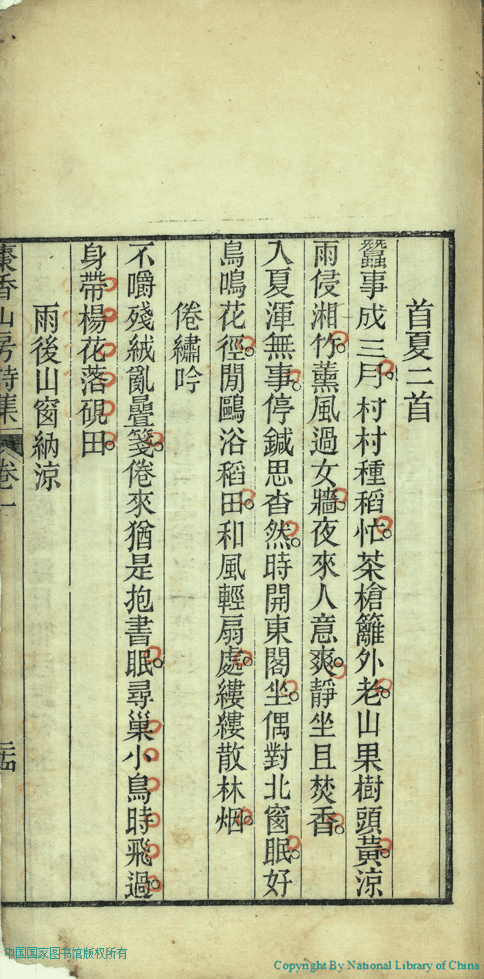 首夏二首
蠶事成三月村村種稻忙茶槍籬外老山果樹頭黃涼
雨侵湘竹薰風過女牆夜來人意爽靜坐且焚香
入夏渾無事停鍼思杳然時開東閣坐偶對北窗眠好
鳥鳴花徑閒鷗浴稻田和風輕扇處縷縷散林烟
倦繡吟
不嚼殘絨亂疊箋倦來猶是抱書眠尋巢小鳥時飛過
身帶楊花落硯田
雨後山窗納涼
香山房詩集 卷一
中国国家图书馆版权所有
Copyright By National Library of China